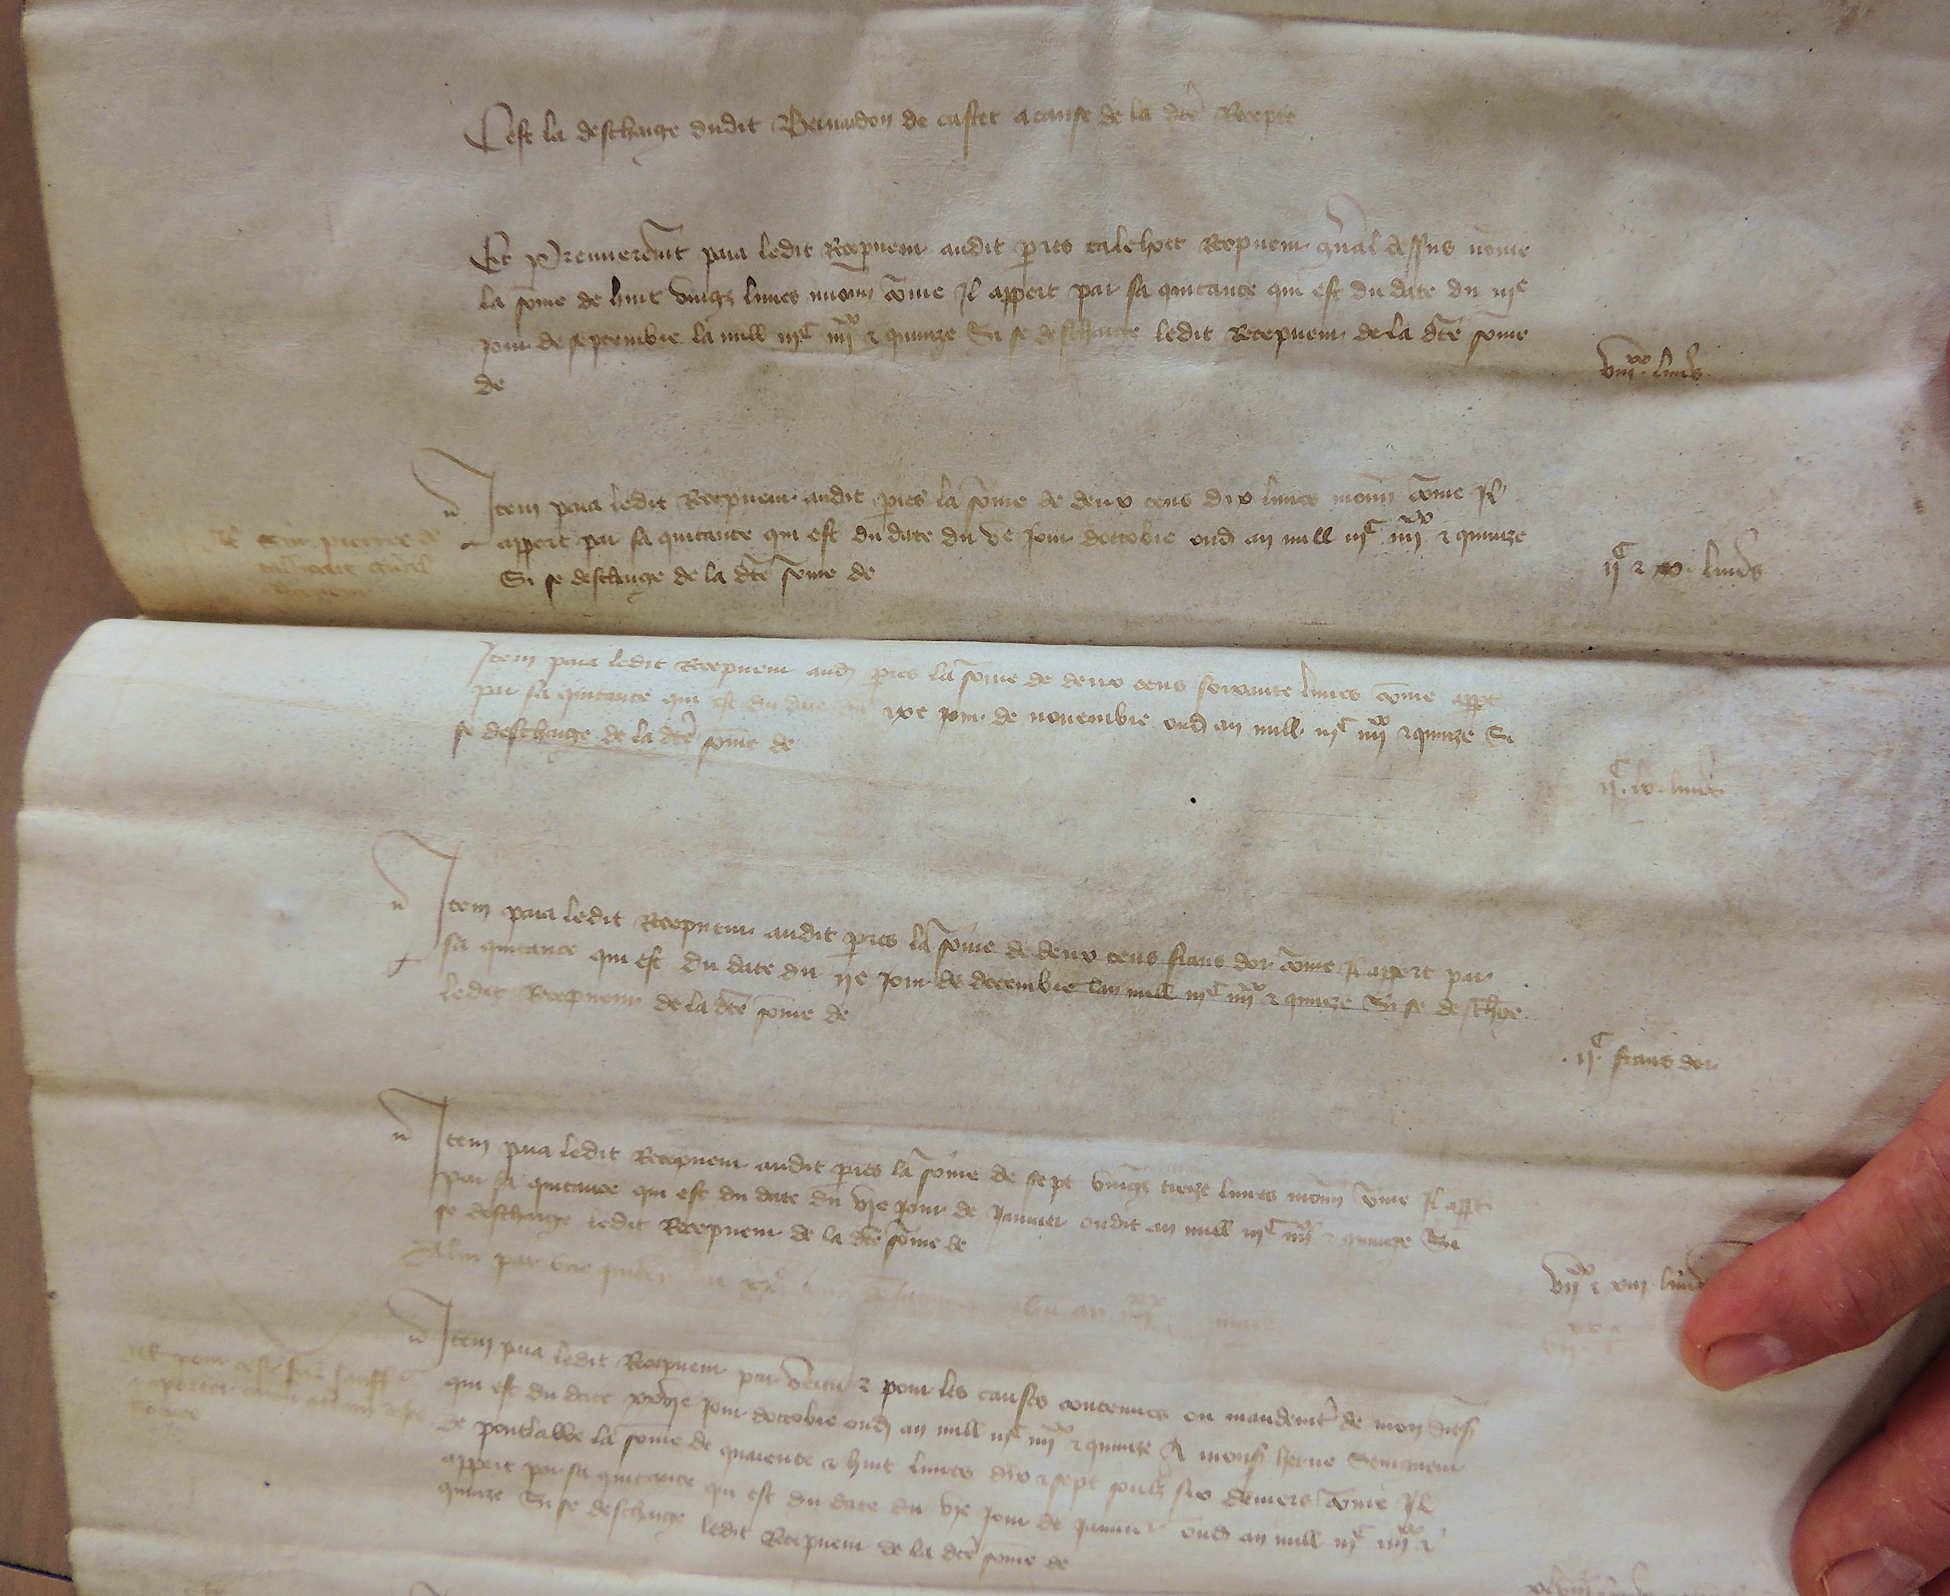 Cest la descharge dudit Bernardon de castet a cause de la dcte Recepte
Et Premieremt paia ledit Recepueur audit pres calehort Recepueur gnal dessus nome
la some de huit vings liures monn come Il appert par sa quitance qui est du date du iije
jour de septembre la mill iijC iiijxx & quinze Si se descharge ledit Recepueur de la dcte some
de
viijxx liures
Item paia ledit Recepueur audit pres la some de deux cens dix liures monn come Il
appert par sa quitance qui est du date du ve Jour doctobre oud an mill iijC iiijxx & quinze
Si se descharge de la dcte some de
ijC & x liures
Item paia ledit Recepueur aud pres la some de deux cens soixante liures come appt
par sa quitance qui est du date du ixe jour de nouembre oud an mill iijC iiijxx & quinze Si
se descharge de la dcte some de
ijC lx liures
Item paia ledit Recepueur audit pres la some de deux cens frans dor come Il appert par
sa quitance qui est du date du ije Jour de decembre lan mill iijC iiijxx & quinze Si se descharge
ledit Recepueur de la dcte some de
ijC frans dor
Item paia ledit Recepueur audit pres la some de sept vings treze liures monn come Il appt
par sa quitance qui est du date du vje jour de Januier oudit an mill iijC iiijxx & quinze Si
se descharge ledit Recepueur de la dcte some de
vijxx & xiij liures
Item paia ledit Recepueur par vertu & pour les causes contenues ou mandemt de mon dit sr
qui est du date xxvije jour doctobre oud an mill iijC iiijxx & quinze A monsr herue
de pontlabbe la some de quarente & huit liures dix & sept soulz six deniers come Il
appert par sa quitance qui est du date du vje Jour de januier oud an mill iijC iiijxx &
quinze Si se descharge ledit Recepueur de la dcte some de